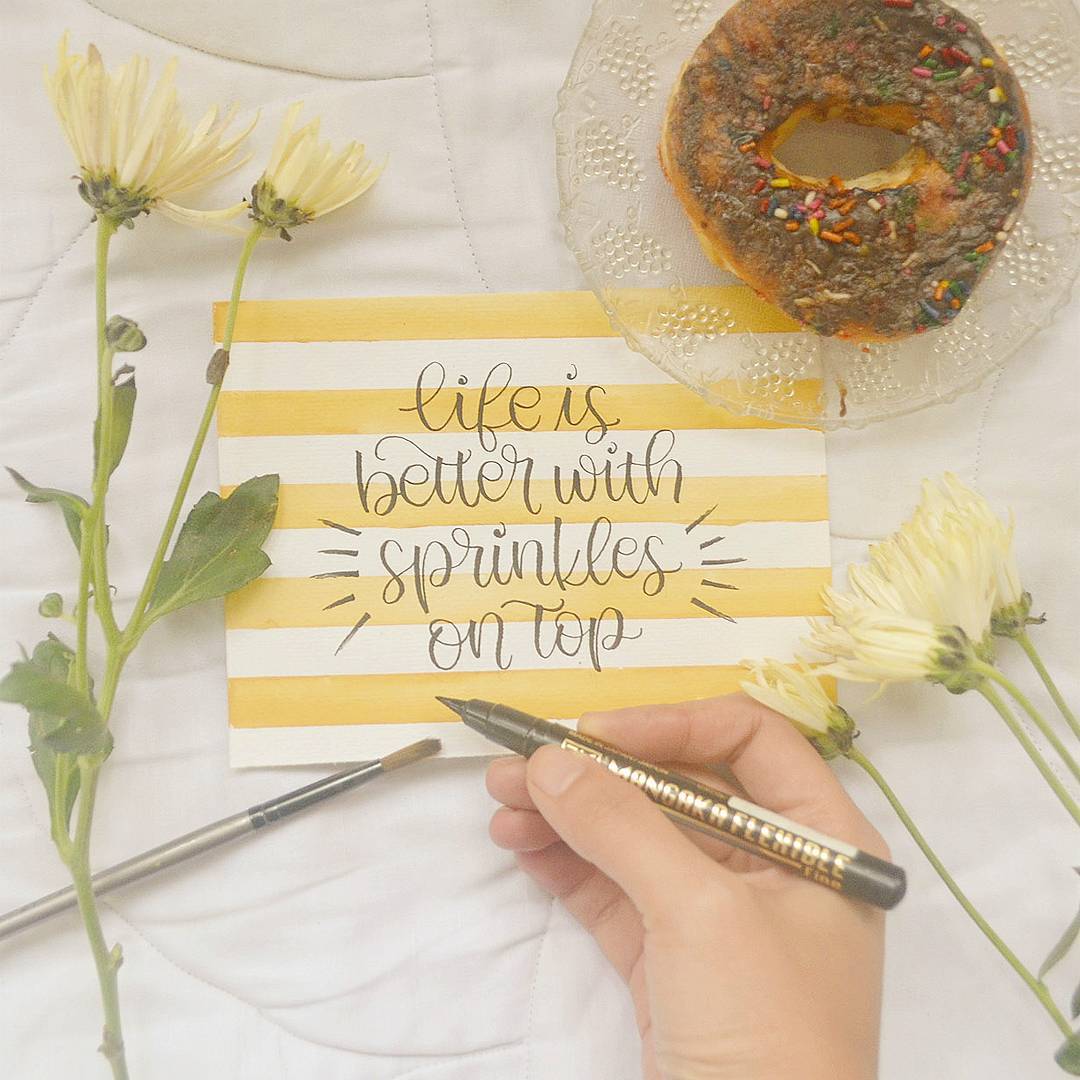 life is
better with
sprinkles
on top
MANGAKA FLEXIBLE
Fine